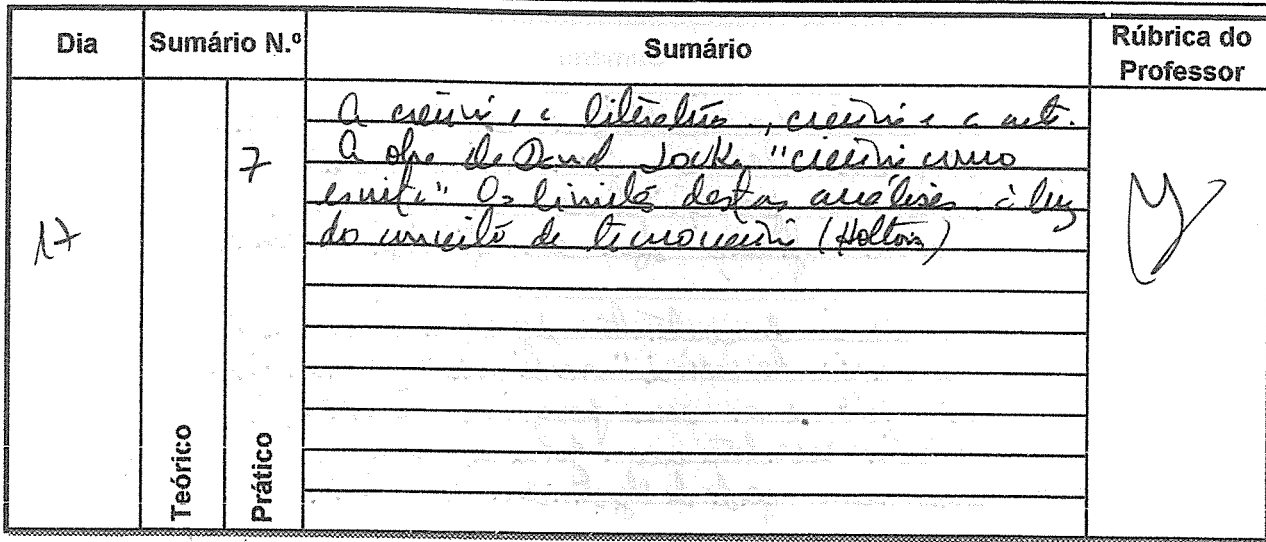 Dia Sumário N.º Sumário Rúbrica do Professor
17
7
Teórico
Prático
A ciência e a literatura, ciência e a arte.
A obra de David Locke "ciência como
escrita" Os limites destas análises à luz
do conceito de tecnociência (Hottois)